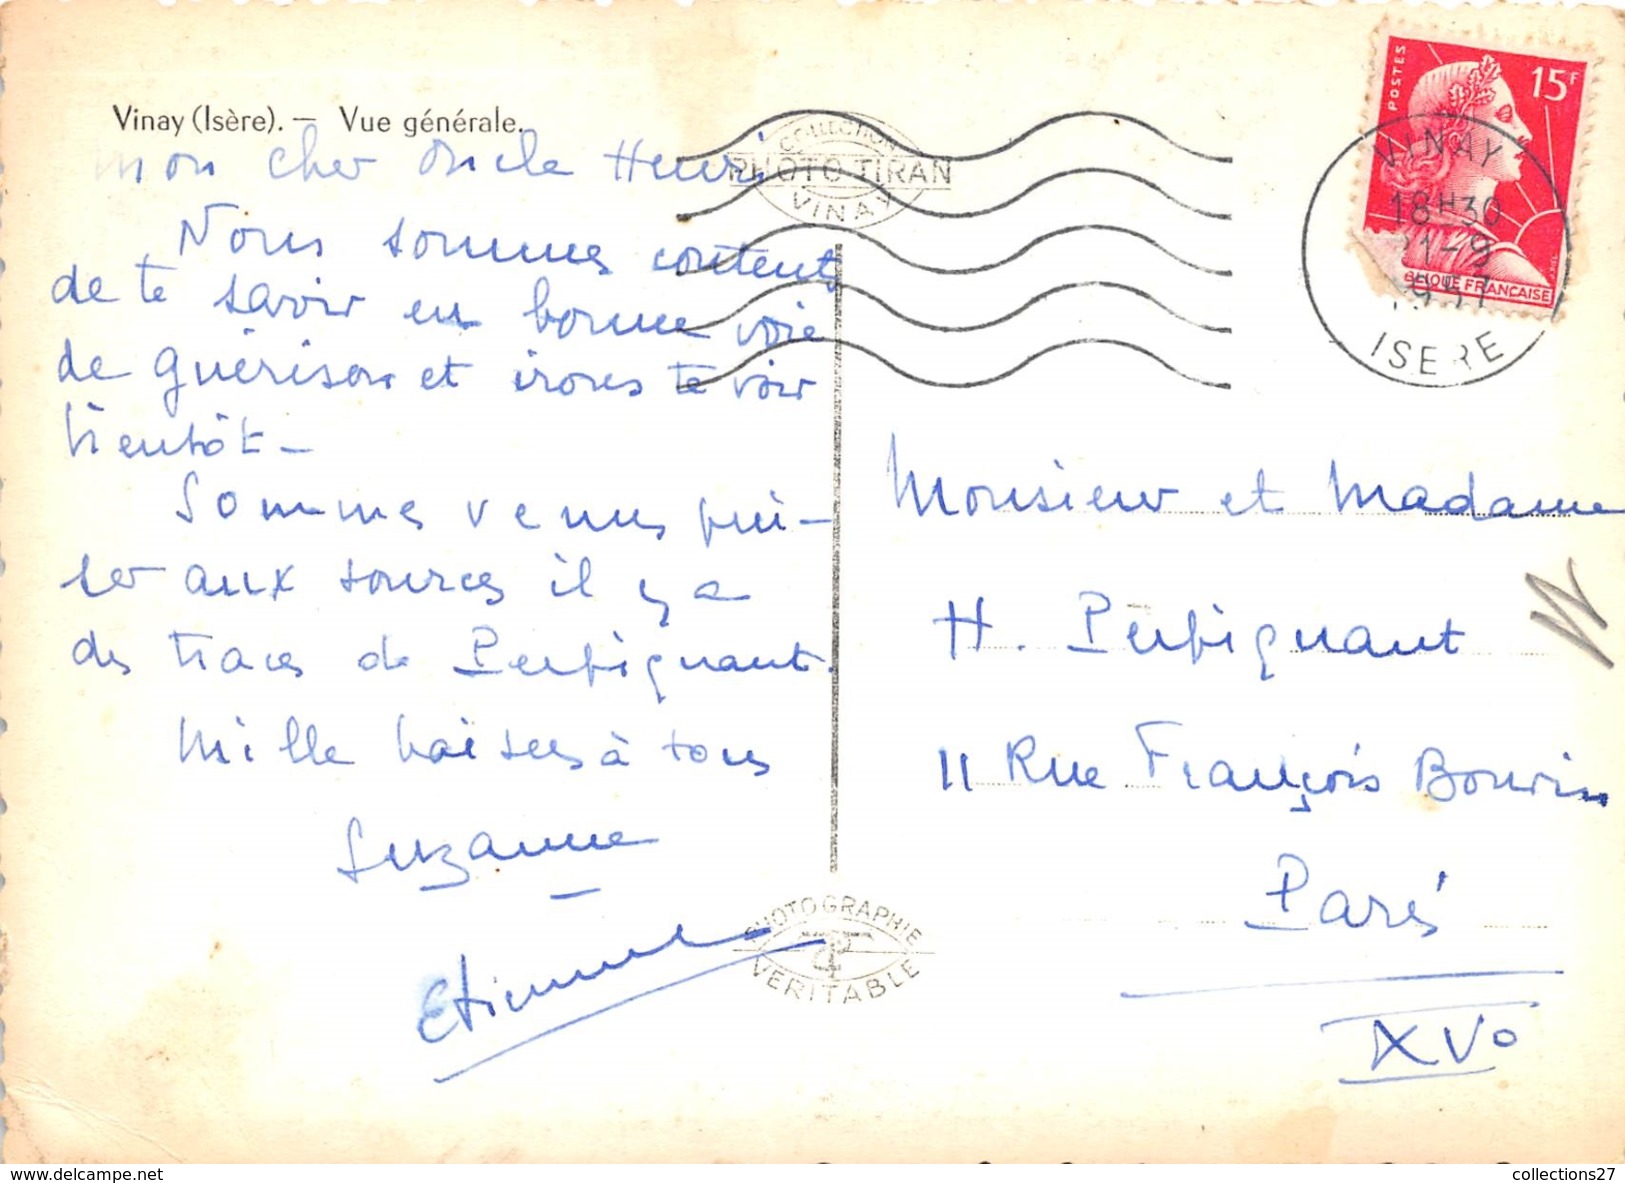 Vinay (Isère). — Vue générale.
mon cher Oncle Henri
Nous sommes contents
de te savoir en bonne voie
de guérison et irons te voir
bientôt —
Sommes venus pui-
ser aux sources il y a
des traces de Perpignant.
Mille baisers à tous
Suzanne
Etienne
COLLECTION
PHOTO TIRAN
VINAY
PHOTOGRAPHIE
VERITABLE
POSTES
15F
BLIQUE FRANCAISE
VINAY
18H30
21-9
1957
ISERE
Monsieur et Madame
H. Perpignant
11 Rue François Bonvin
Paris
XVo
collections27